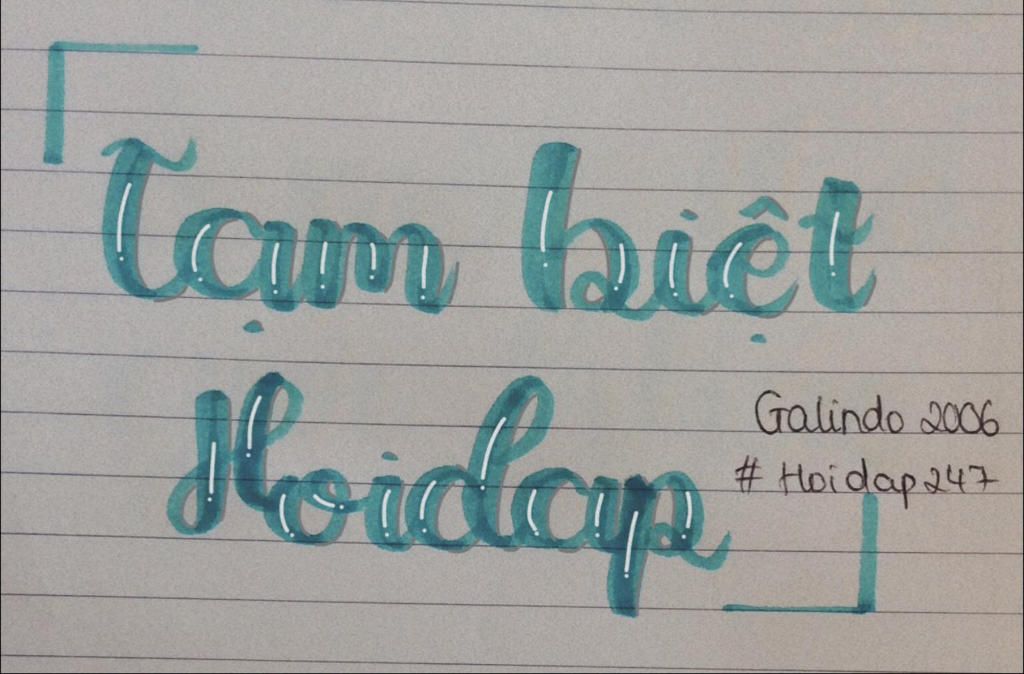 Tạm biệt
Hoidap
Galindo 2006
# Hoidap247